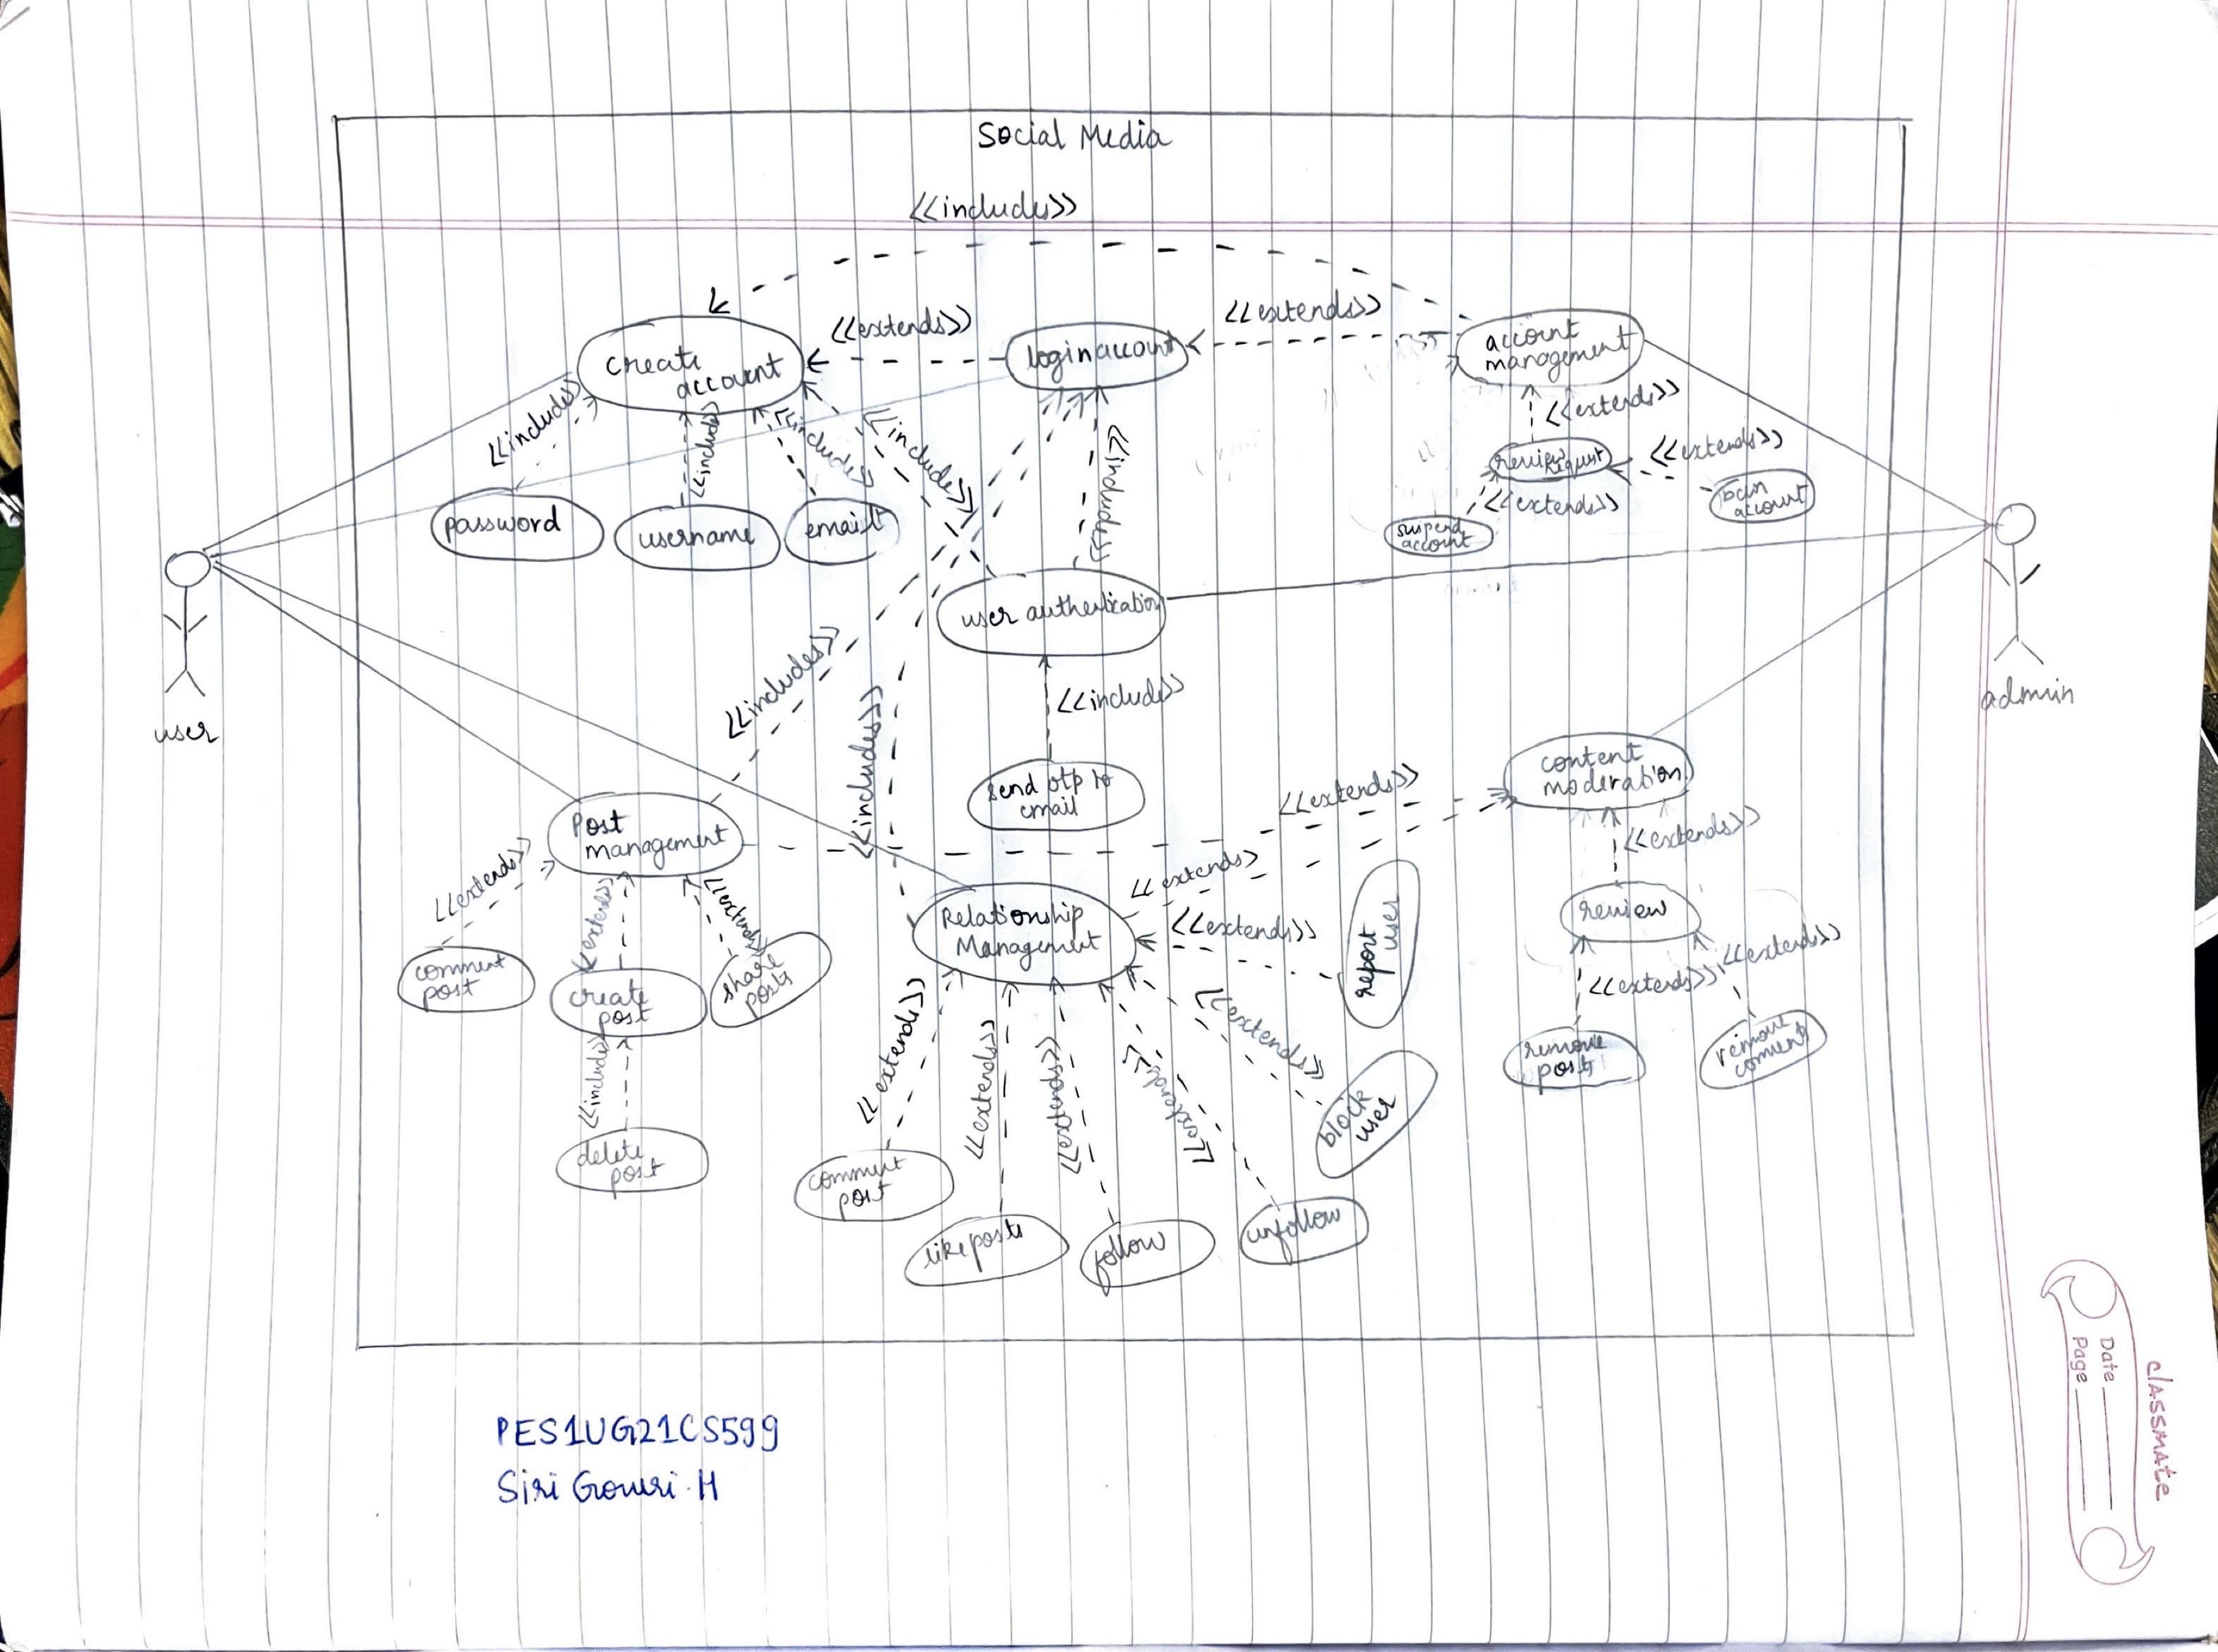 Social Media
<<includes>>
<<extends>>
<<extends>>
create
account
login account
account
management
<<includes>>
<<includes>>
<<includes>>
<<includes>>
<<includes>>
<<extends>>
<<extends>>
<<extends>>
suspend
account
account
password
username
user authentication
user
admin
<<includes>>
<<includes>>
<<includes>>
send otp to
email
content
moderation
<<extends>>
<<extends>>
Post
management
<<extends>>
<<extends>>
<<extends>>
<<extends>>
Relationship
Management
<<extends>>
report
user
review
<<extends>>
<<extends>>
comment
post
create
post
share
posts
<<includes>>
delete
post
<<extends>>
<<extends>>
<<extends>>
<<extends>>
<<extends>>
block
user
remove
post
remove
comment
comment
post
like posts
follow
unfollow
PES1UG21CS599
Siri Gowri.H
classmate
Date
Page